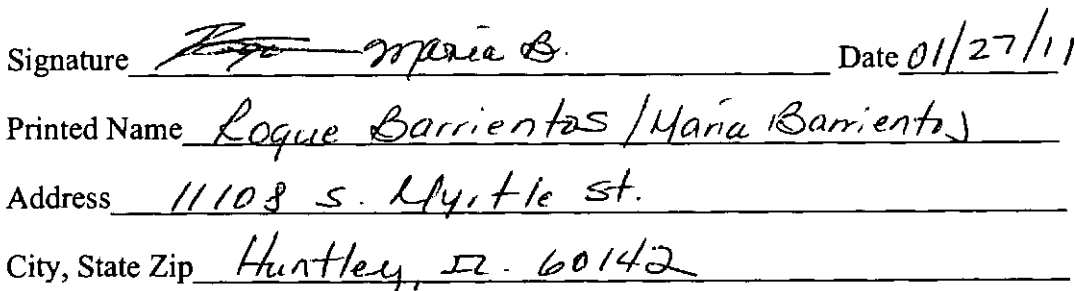 Signature Maria B. Date 01/27/11
Printed Name Roque Barrientos / Maria Barrientos
Address 11108 S. Myrtle St.
City, State Zip Huntley, IL. 60142